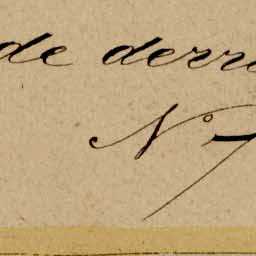 de derre
N° 7